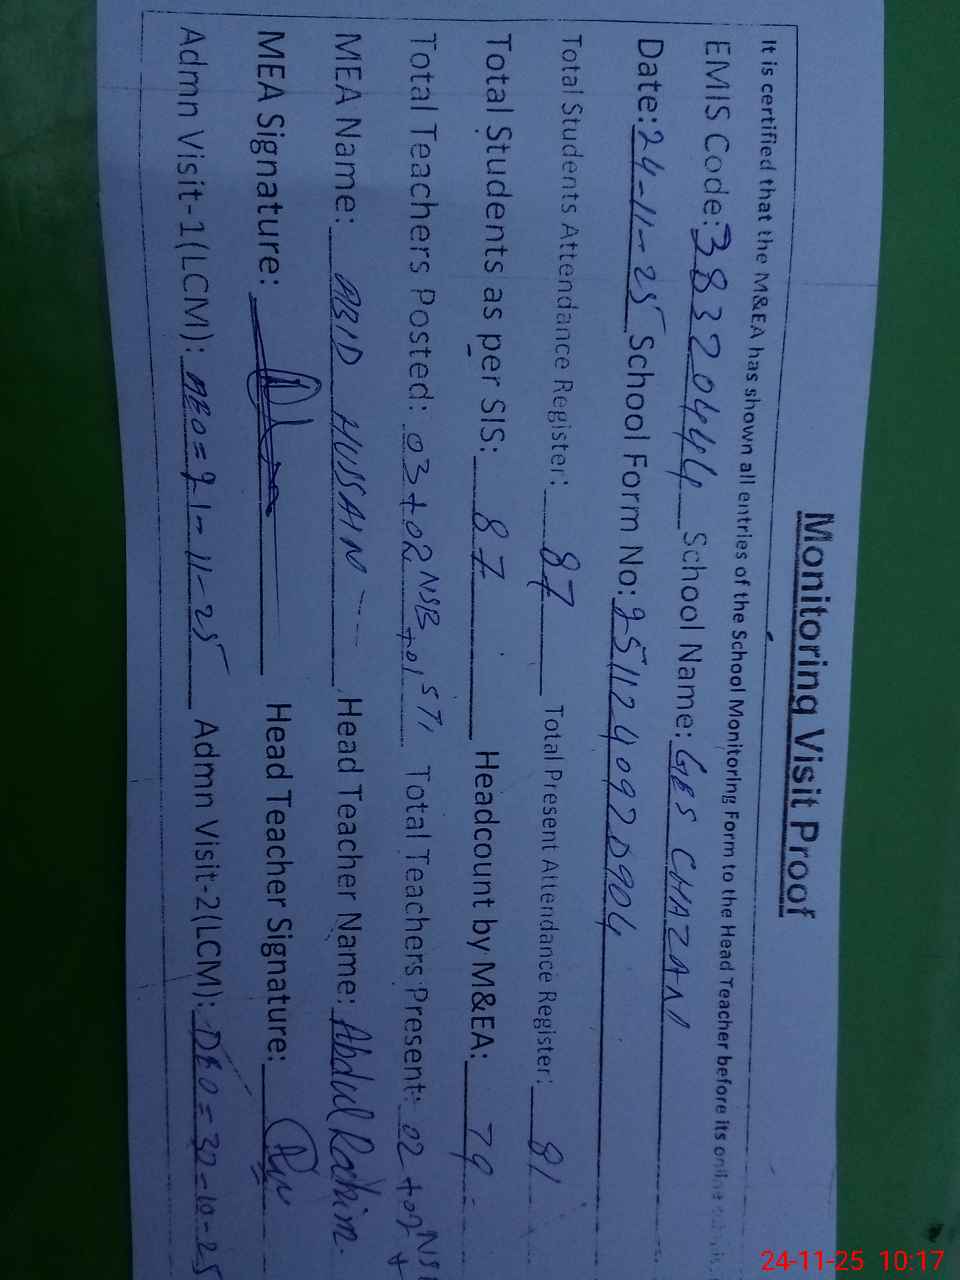 Monitoring Visit Proof
It is certified that the M&EA has shown all entries of the School Monitoring Form to the Head Teacher before its online
EMIS Code: 38320444 School Name: GES CHAZANI
Date: 24-11-25 School Form No: 251124092D904
Total Students Attendance Register: 87 Total Present Attendance Register: 81
Total Students as per SIS: 87 Headcount by M&EA: 79
Total Teachers Posted: 03+02 NSB +01 STI Total Teachers Present: 02+02
MEA Name: ABID HUSSAIN Head Teacher Name: Abdul Rahim.
MEA Signature: Head Teacher Signature:
Admn Visit-1(LCM): AEO=21-11-25 Admn Visit-2(LCM): DEO=30-10-25
24-11-25 10:17